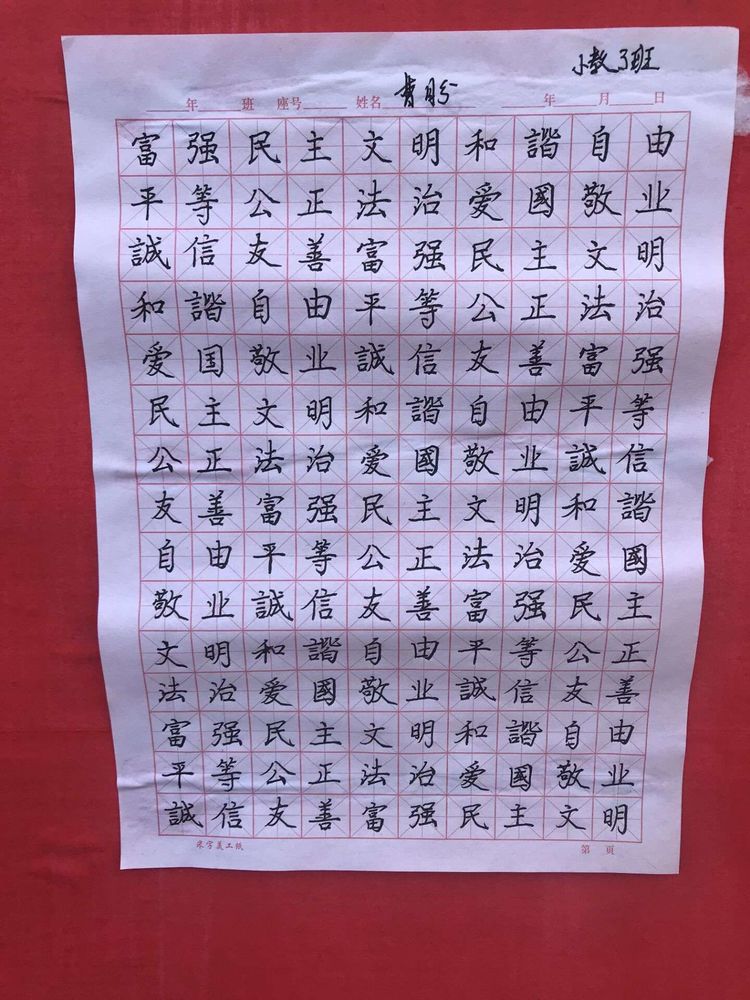 小教3班
年 班 座号 姓名 曹月兮 年 月 日
富强民主文明和諧自由
平等公正法治爱國敬业
誠信友善富强民主文明
和諧自由平等公正法治
爱国敬业誠信友善富强
民主文明和諧自由平等
公正法治爱國敬业誠信
友善富强民主文明和諧
自由平等公正法治爱國
敬业誠信友善富强民主
文明和諧自由平等公正
法治爱國敬业誠信友善
富强民主文明和諧自由
平等公正法治爱國敬业
誠信友善富强民主文明
米字美工纸 第 頁